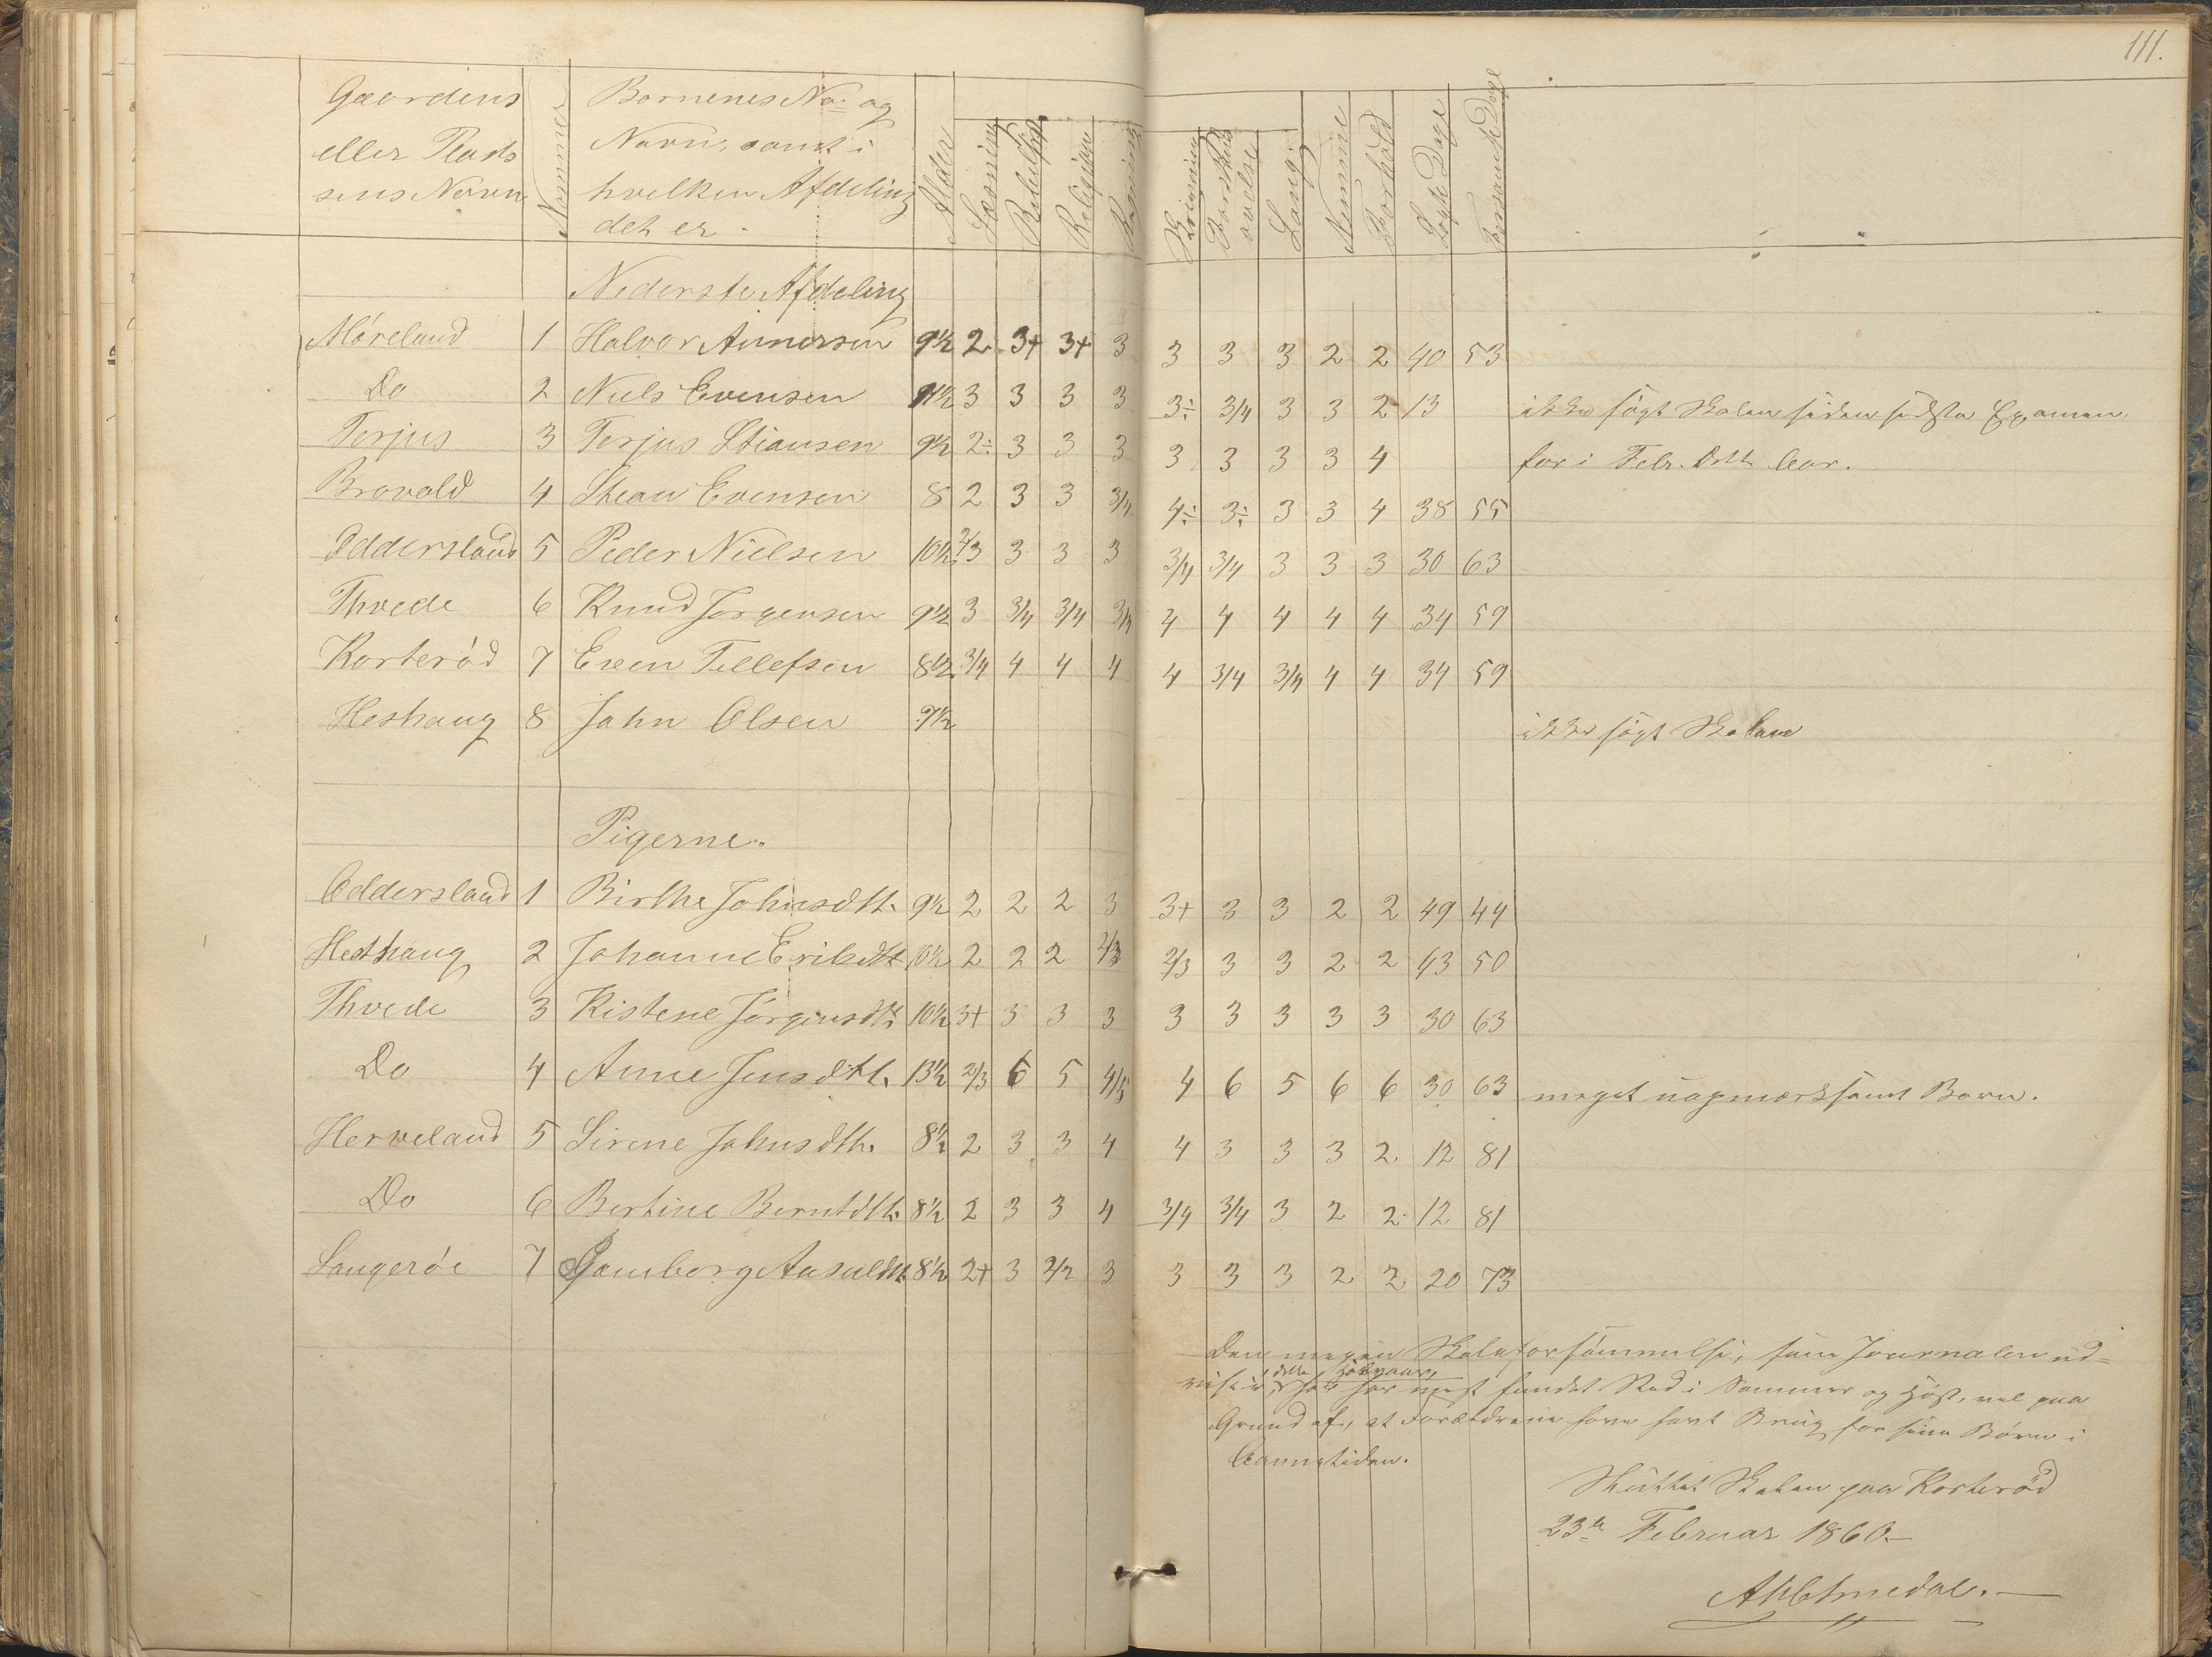 111.
Gaardens
eller Plads
sens Navn
Nummer
Bornenes No og
Navn, samt i
hvilken Afdeling
det er.
Alder
Læsning
Religion
Regning
Skrivning
Forstands
øvelse
Sang.
Nemme
Forhold
Søgte Dage
Forsømte Dage
Nederste Afdeling
Móreland 1 Halvor Annersen 9½ 2 3+ 3+ 3 3 3 3 2 2 40 53
Do 2 Niels Evensen 9½ 3 3 3 3 3÷ 3/4 3 3 2 13 ikke søgt Skolen siden sidste Examen
Terjus 3 Terjus Stiansen 9½ 2÷ 3 3 3 3 3 3 3 4 for i Febr.
Bravold 4 Stean Evensen 8 2 3 3 3/4 4÷ 3÷ 3 3 4 38 55
Oddersland 5 Peder Nielsen 10½ 2/3 3 3 3 3/4 3/4 3 3 3 30 63
Thvede 6 Knud Jørgensen 9½ 3 3/4 3/4 3/4 4 4 4 4 4 34 59
Korterød 7 Even Tellefsen 8½ 3/4 4 4 4 4 3/4 3/4 4 4 34 59
Heshaug 8 Jahn Olsen 9½ ikke søgt Skolen
Pigerne.
Oddersland 1 Birthe Johnsdtt. 9½ 2 2 2 3 3+ 3 3 2 2 49 44
Hesthaug 2 Johanne Eriksdtt 10½ 2 2 2 2/3 2/3 3 3 2 2 43 50
Thvede 3 Kistene Jørgensdtt 10½ 3+ 3 3 3 3 3 3 3 3 30 63
Do 4 Anne Jensdtt. 13½ 2/3 6 5 4/5 4 6 5 6 6 30 63 meget uopmærksomt Barn.
Herveland 5 Sirene Johnsdtt. 8½ 2 3 3 4 4 3 3 3 2 12 81
Do 6 Bertine Berntdtt. 8½ 2 3 3 4 3/4 3/4 3 2 2 12 81
Laugerøe 7 Gunborg Aasuldtt 8½ 2+ 3 2/2 3 3 3 3 2 2 20 73
Den megen Skoleforsømmelse, som Journalen ud=
viser i dette Skoleaar, har mest fundet Sted i Sommer og Høst, vel paa
Grund af, at Forældrene have havt Brug for sine Børn i
Aannetiden.
Sluttet Skolen paa Korterød
23de Februar 1860.